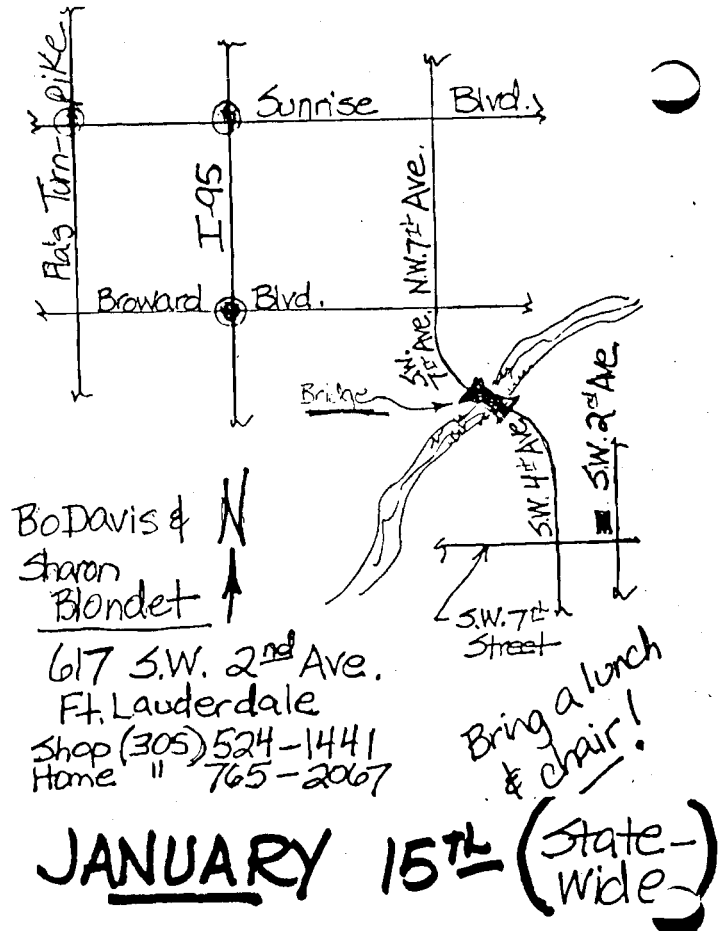 Fla's Turn-pike
Sunrise Blvd.
I-95
N.W. 7th Ave.
Broward Blvd.
S.W. 7th Ave.
Bridge
S.W. 4th Ave.
S.W. 2nd Ave.
S.W. 7th Street
N
Bo Davis &
Sharon
Blondet
617 S.W. 2nd Ave.
Ft. Lauderdale
Shop (305) 524-1441
Home " 765-2067
Bring a lunch
& chair!
JANUARY 15TH (State-
Wide)